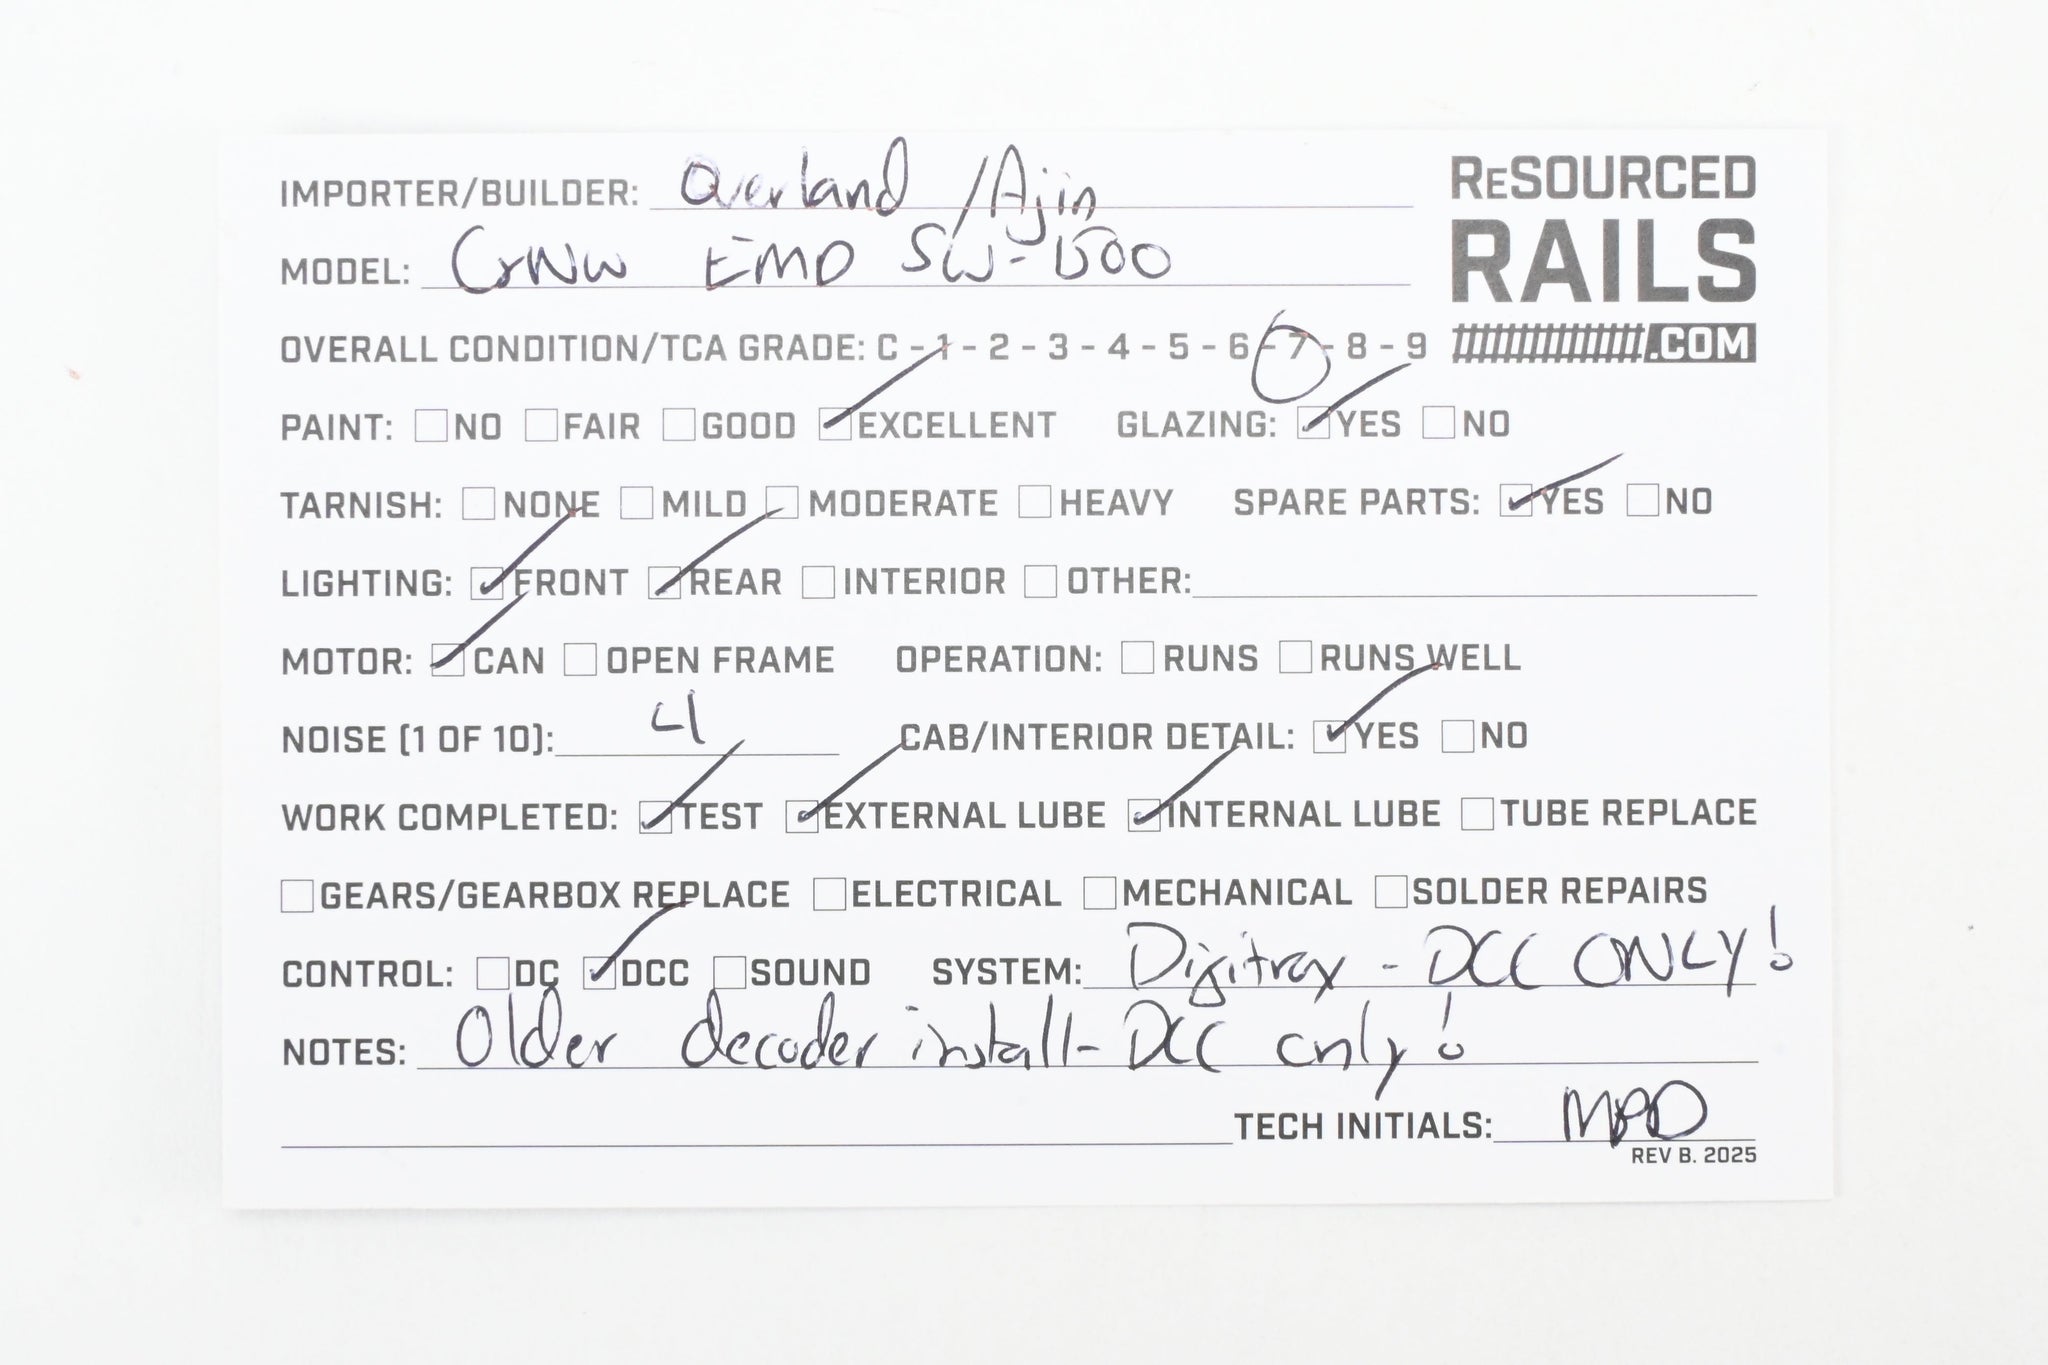 IMPORTER/BUILDER: Overland /Ajin
ReSOURCED
RAILS
.COM
MODEL: C&NW EMD SW-1500
OVERALL CONDITION/TCA GRADE: C - 1 - 2 - 3 - 4 - 5 - 6 - 7 - 8 - 9
PAINT: NO FAIR GOOD EXCELLENT GLAZING: YES NO
TARNISH: NONE MILD MODERATE HEAVY SPARE PARTS: YES NO
LIGHTING: FRONT REAR INTERIOR OTHER:
MOTOR: CAN OPEN FRAME OPERATION: RUNS RUNS WELL
NOISE (1 OF 10): 4 CAB/INTERIOR DETAIL: YES NO
WORK COMPLETED: TEST EXTERNAL LUBE INTERNAL LUBE TUBE REPLACE
GEARS/GEARBOX REPLACE ELECTRICAL MECHANICAL SOLDER REPAIRS
CONTROL: DC DCC SOUND SYSTEM: Digitrax - DCC ONLY!
NOTES: Older decoder install - DCC only!
TECH INITIALS: MPD
REV B. 2025